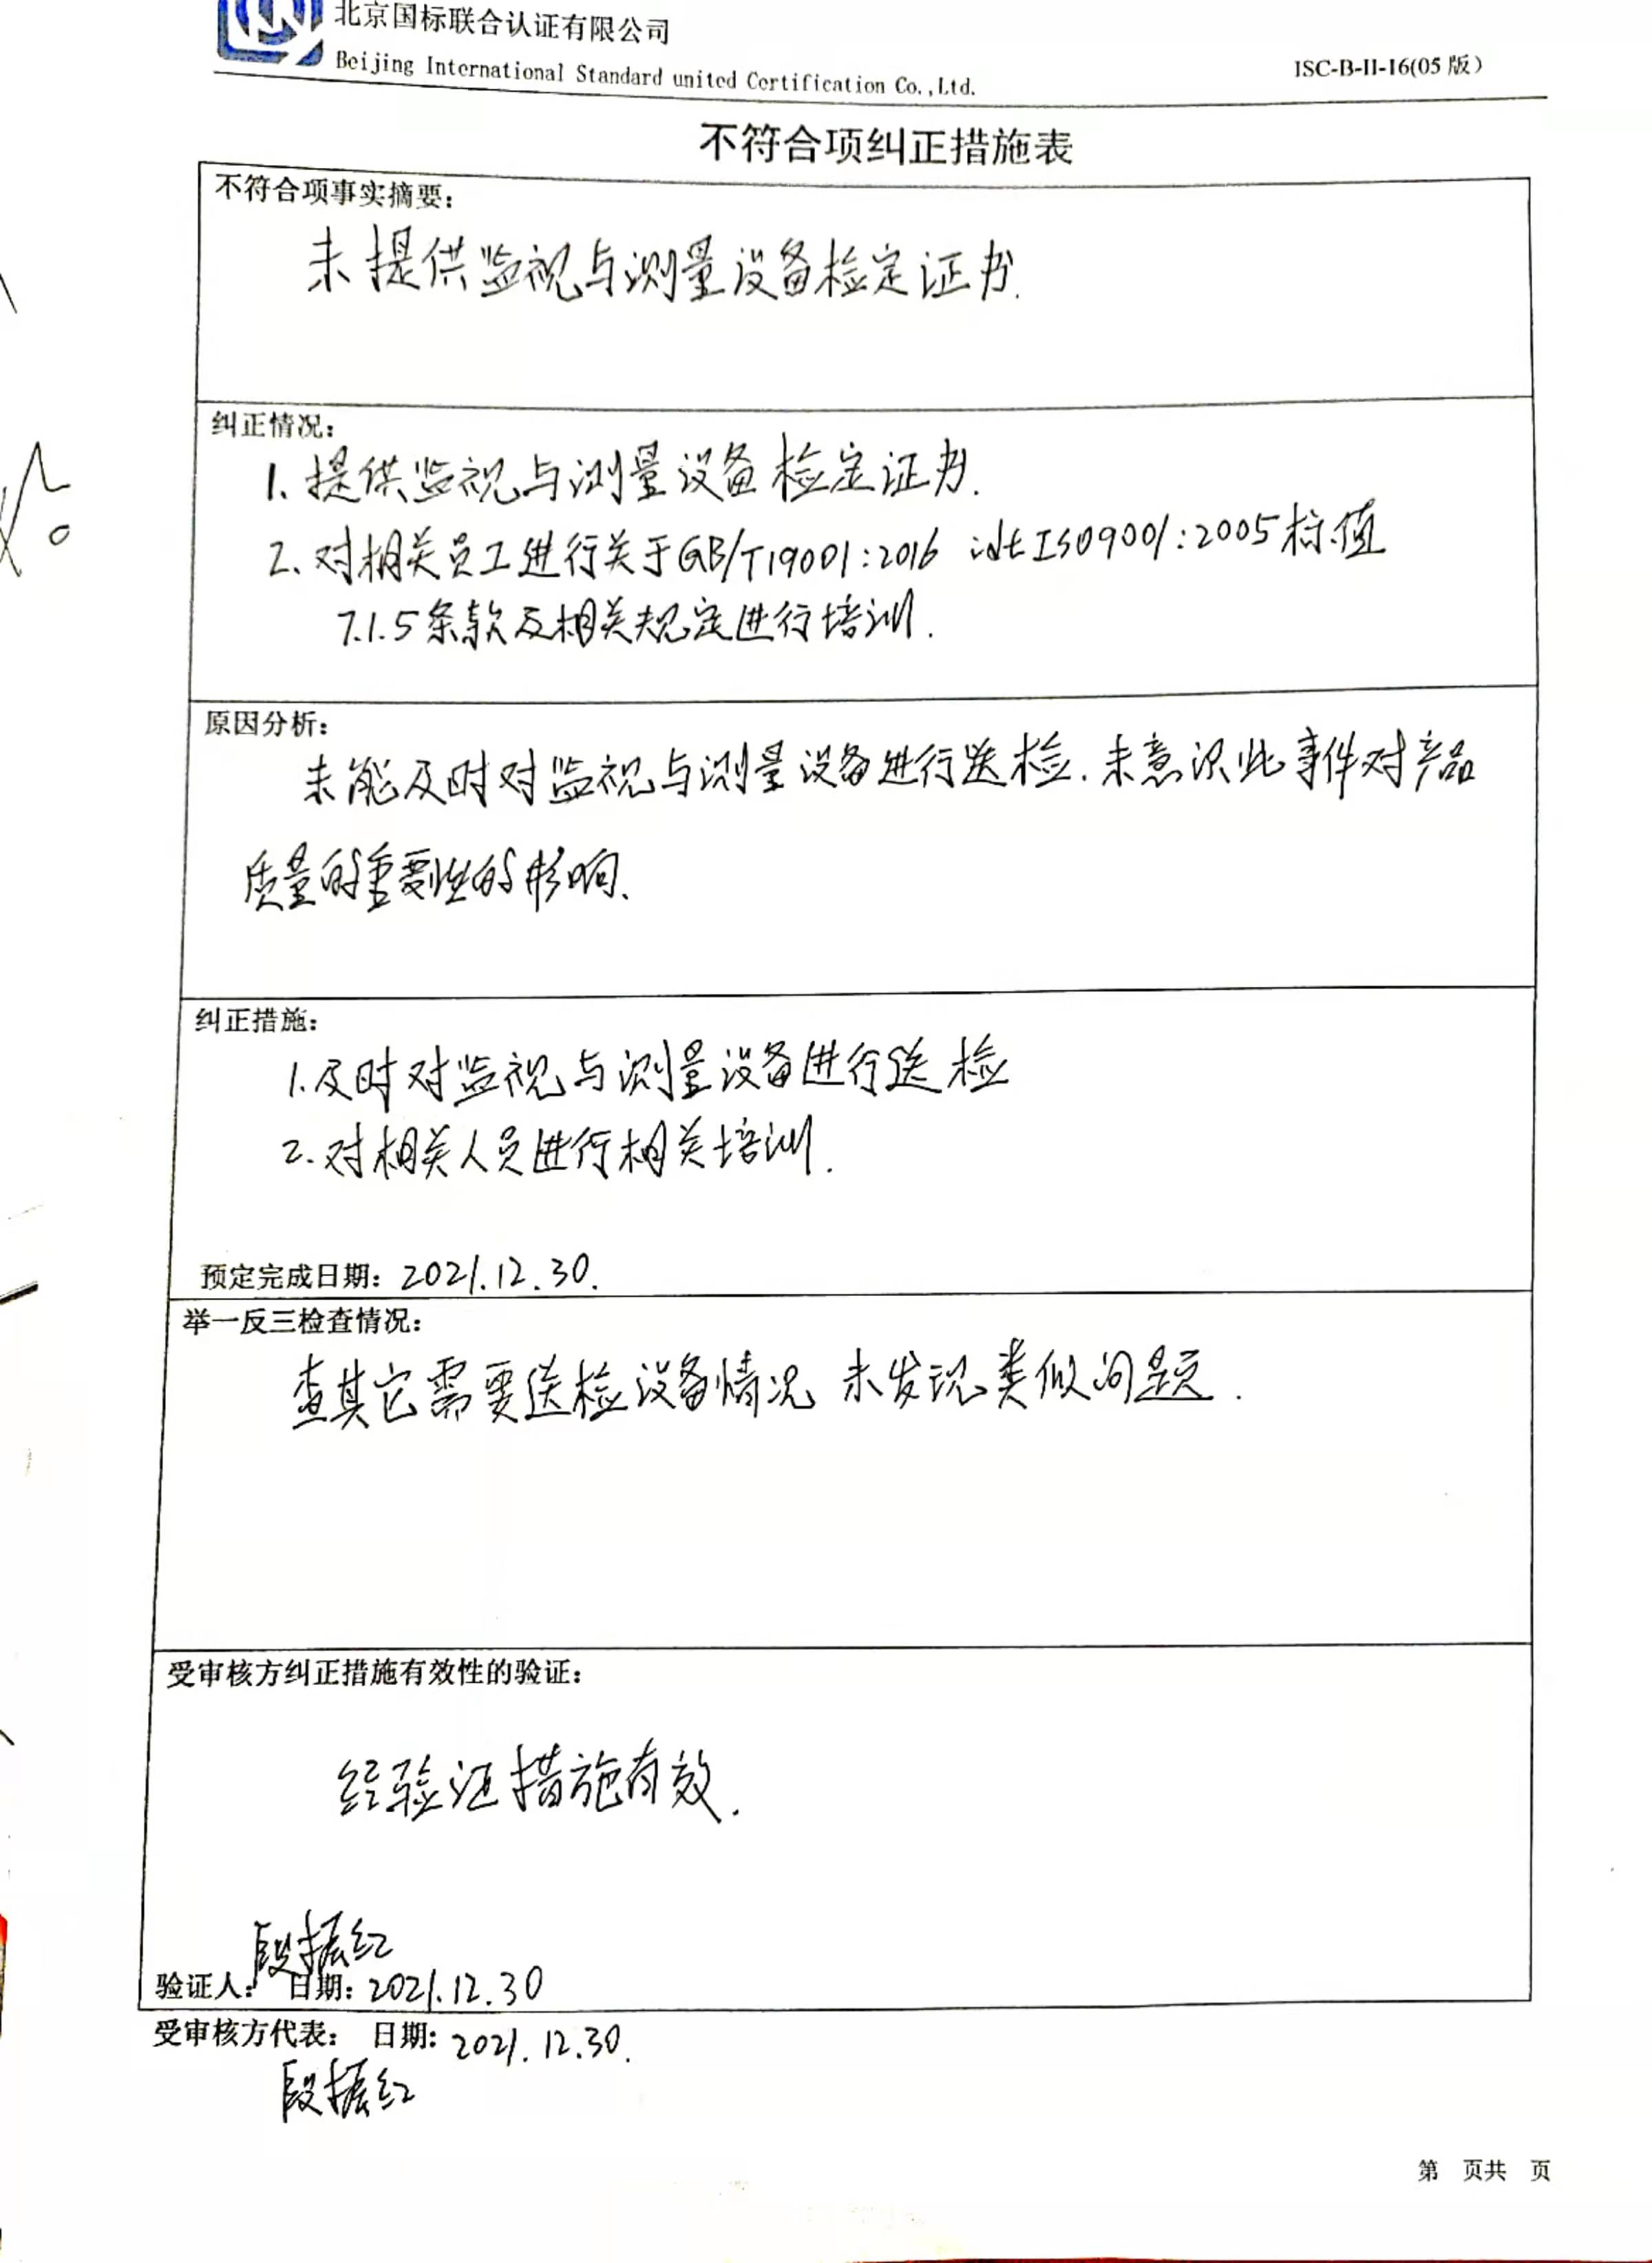 北京国标联合认证有限公司
Beijing International Standard united Certification Co.,Ltd.
ISC-B-II-16(05版)
不符合项纠正措施表
不符合项事实摘要:
未提供监视与测量设备检定证书.
纠正情况:
1. 提供监视与测量设备检定证书.
2. 对相关员工进行关于GB/T19001:2016 idt ISO9001:2005标值
7.1.5条款及相关规定进行培训.
原因分析:
未能及时对监视与测量设备进行送检.未意识此事件对产品
质量的重要性的影响.
纠正措施:
1.及时对监视与测量设备进行送检
2.对相关人员进行相关培训.
预定完成日期: 2021.12.30.
举一反三检查情况:
查其它需要送检设备情况 未发现类似问题.
受审核方纠正措施有效性的验证:
经验证措施有效.
段振红
验证人: 日期: 2021.12.30
受审核方代表: 日期: 2021.12.30.
段振红
第 页共 页